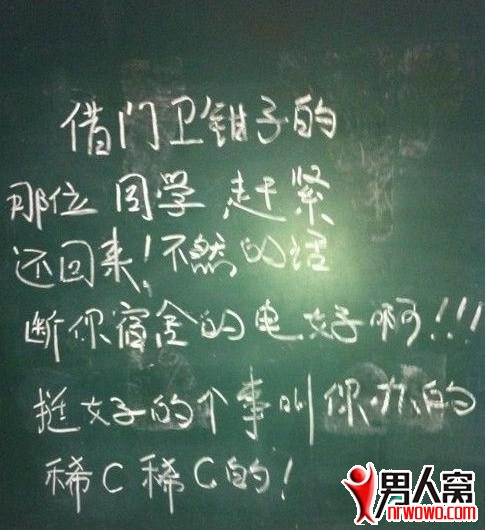 借门卫钳子的
那位同学赶紧
还回来!不然的话
断你宿舍的电好啊!!!
挺好的个事叫你办的
稀C稀C的!
男人窝
nrwowo.com